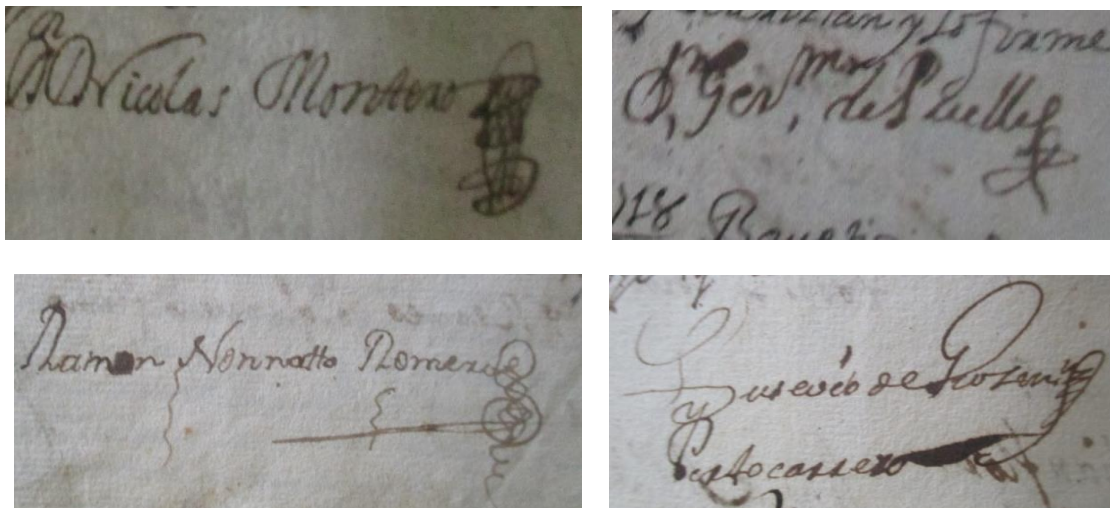 Br. D. Nicolas Montero
y lo firme
Dn. Germo. de Puelles
718
Ramon Nonnatto Romero
Eusevio de
y
Portocarrero